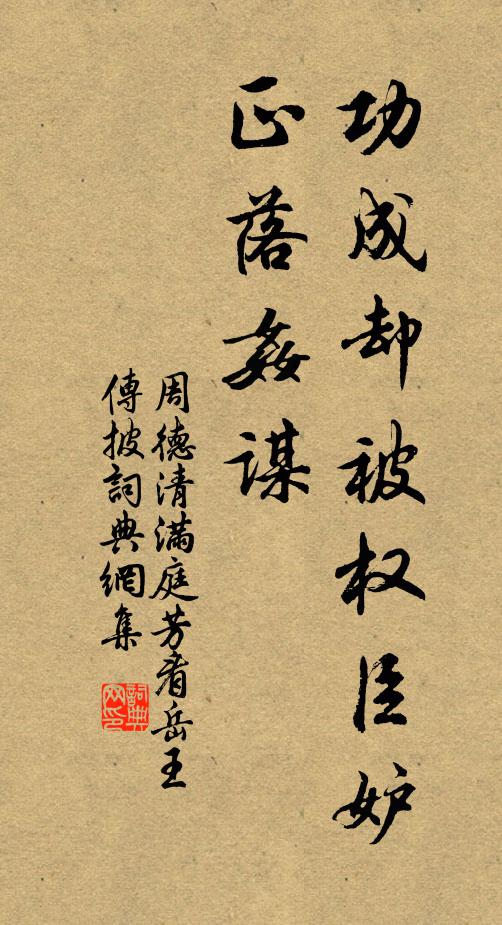 功成却被权臣妒
正落姦谋
周德清满庭芳看岳王
傳披詞典網集
詞典网印